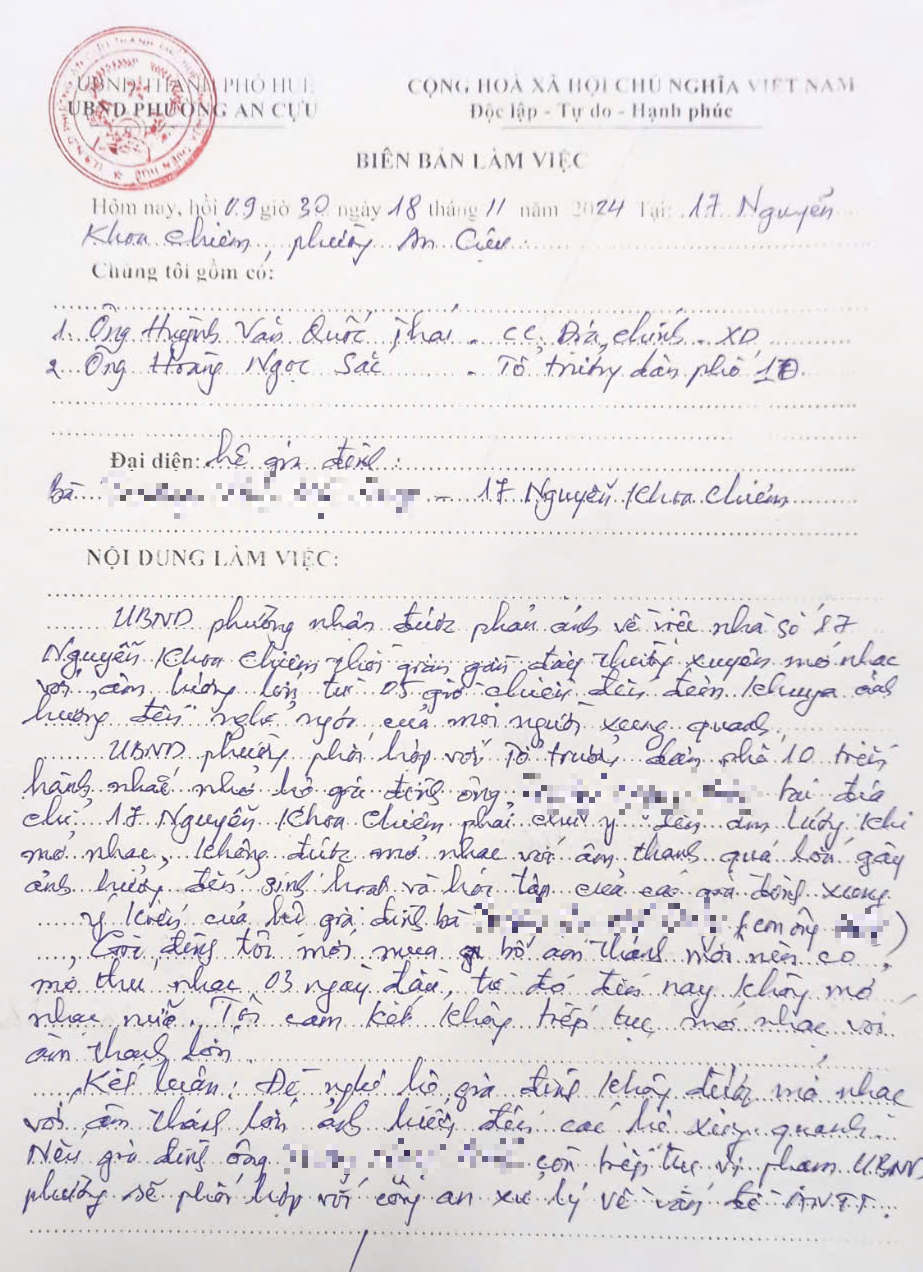 UBND THÀNH PHỐ HUẾ
UBND PHƯỜNG AN CỰU
CỘNG HOÀ XÃ HỘI CHỦ NGHĨA VIỆT NAM
Độc lập - Tự do - Hạnh phúc
BIÊN BẢN LÀM VIỆC
Hôm nay, hồi 09 giờ 30 ngày 18 tháng 11 năm 2024 Tại: 17 Nguyễn
Khoa Chiêm, phường An Cựu.
Chúng tôi gồm có:
1. Ông Huỳnh Văn Quốc Thái - CC. Địa chính - XD
2. Ông Hoàng Ngọc Sắc - Tổ trưởng dân phố 10.
Đại diện: hộ gia đình:
Bà - 17 Nguyễn Khoa Chiêm
NỘI DUNG LÀM VIỆC:
UBND phường nhận được phản ánh về việc nhà số 17
Nguyễn Khoa Chiêm thời gian gần đây thường xuyên mở nhạc
với âm lượng lớn từ 05 giờ chiều đến đêm khuya ảnh
hưởng đến nghỉ ngơi của mọi người xung quanh.
UBND phường phối hợp với Tổ trưởng dân phố 10 tiến
hành nhắc nhở hộ gia đình ông tại địa
chỉ 17 Nguyễn Khoa Chiêm phải chú ý đến âm lượng khi
mở nhạc, không được mở nhạc với âm thanh quá lớn gây
ảnh hưởng đến sinh hoạt và học tập của các gia đình xung
ý kiến của hộ gia đình bà (con ông )
Gia đình tôi mới mua bộ âm thanh mới nên có
mở thử nhạc 03 ngày đầu, từ đó đến nay không mở
nhạc nữa. Tôi cam kết không tiếp tục mở nhạc với
âm thanh lớn.
Kết luận: Đề nghị hộ gia đình không được mở nhạc
với âm thanh lớn ảnh hưởng đến các hộ xung quanh.
Nếu gia đình ông còn tiếp tục vi phạm UBND
phường sẽ phối hợp với công an xử lý về vấn đề ANTT.